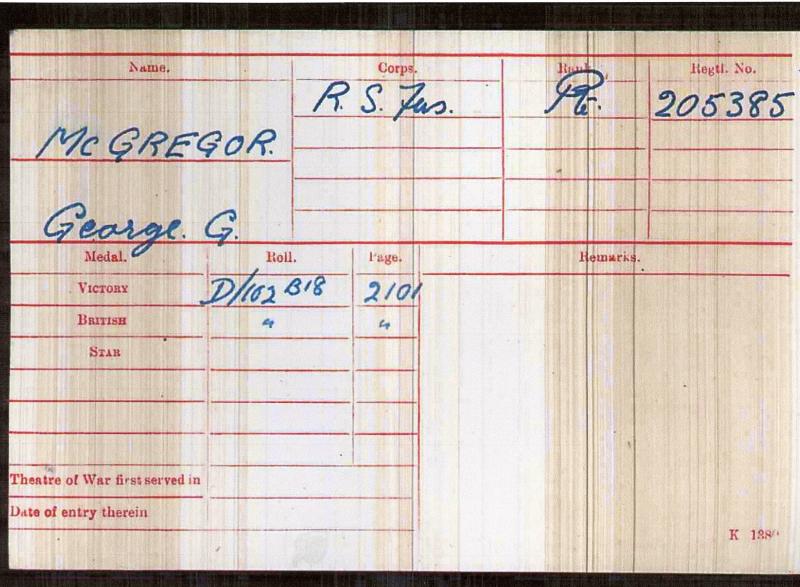 Name. Corps. Rank. Regtl. No.
R. S. Fus. Pte. 205385
McGREGOR.
George. G.
Medal. Roll. Page. Remarks.
VICTORY D/102 B18 2101
BRITISH " "
STAR
Theatre of War first served in
Date of entry therein
K 1380